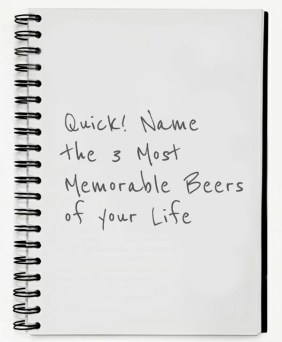 Quick! Name
the 3 Most
Memorable Beers
of your Life